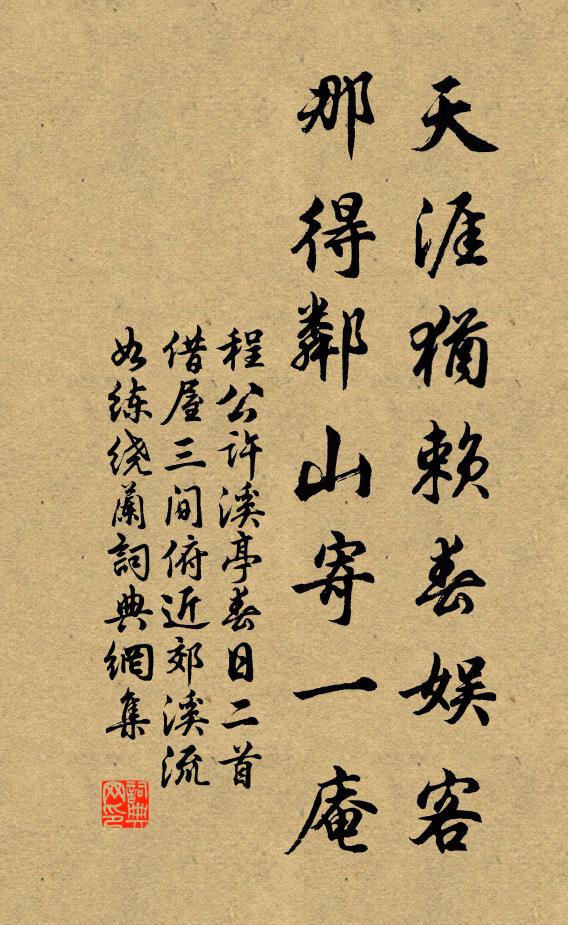 天涯猶賴春娱客
那得鄰山寄一庵
程公许溪亭春日二首
借屋三间俯近郊溪流
如练绕蘭詞典網集
詞典
网印